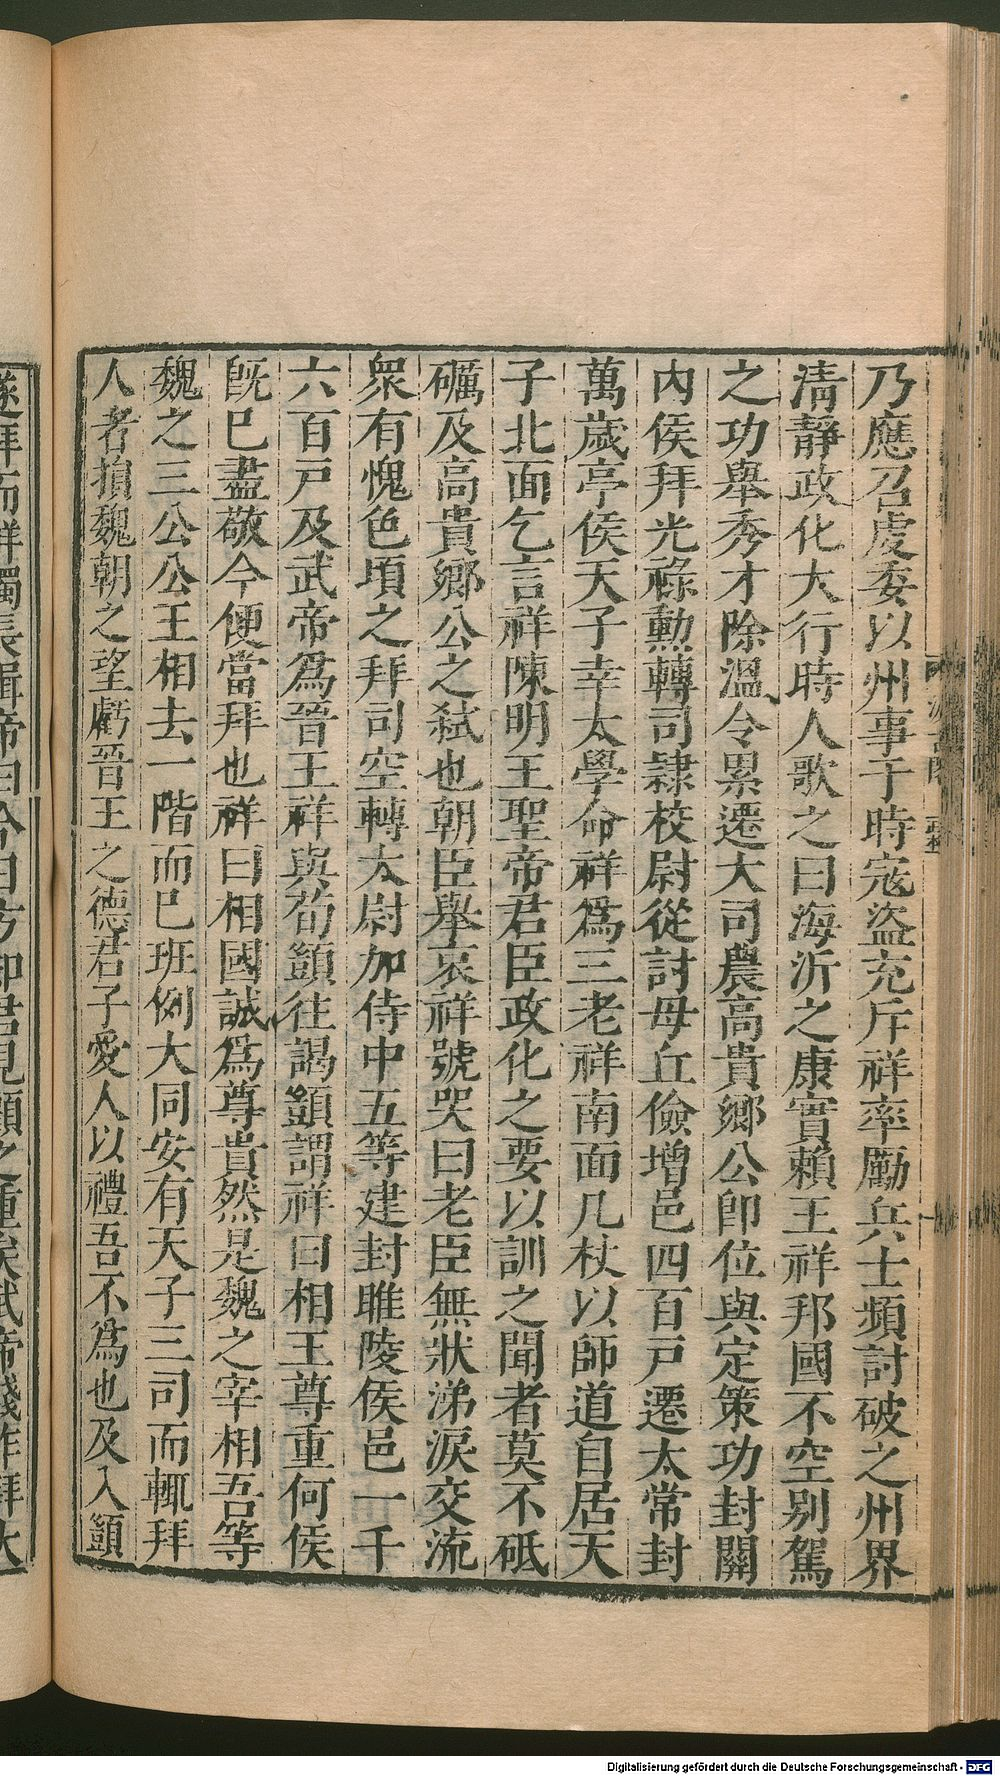 乃應召虔委以州事于時寇盜充斥祥率勵兵士頻討破之州界
清靜政化大行時人歌之曰海沂之康實賴王祥邦國不空別駕
之功舉秀才除溫令累遷大司農高貴鄉公卽位與定策功封關
內侯拜光祿勳轉司隸校尉從討毋丘儉增邑四百戶遷太常封
萬歲亭侯天子幸太學命祥爲三老祥南面几杖以師道自居天
子北面乞言祥陳明王聖帝君臣政化之要以訓之聞者莫不砥
礪及高貴鄉公之弑也朝臣舉哀祥號哭曰老臣無狀涕淚交流
衆有愧色頃之拜司空轉太尉加侍中五等建封睢陵侯邑一千
六百戶及武帝爲晉王祥與荀顗往謁顗謂祥曰相王尊重何侯
旣巳盡敬今便當拜也祥曰相國誠爲尊貴然是魏之宰相吾等
魏之三公公王相去一階而巳班例大同安有天子三司而輒拜
人者損魏朝之望虧晉王之德君子愛人以禮吾不爲也及入顗
遂拜而祥獨長揖帝曰今日方知君見顧之重矣武帝踐阼拜太
Digitalisierung gefördert durch die Deutsche Forschungsgemeinschaft - DFG